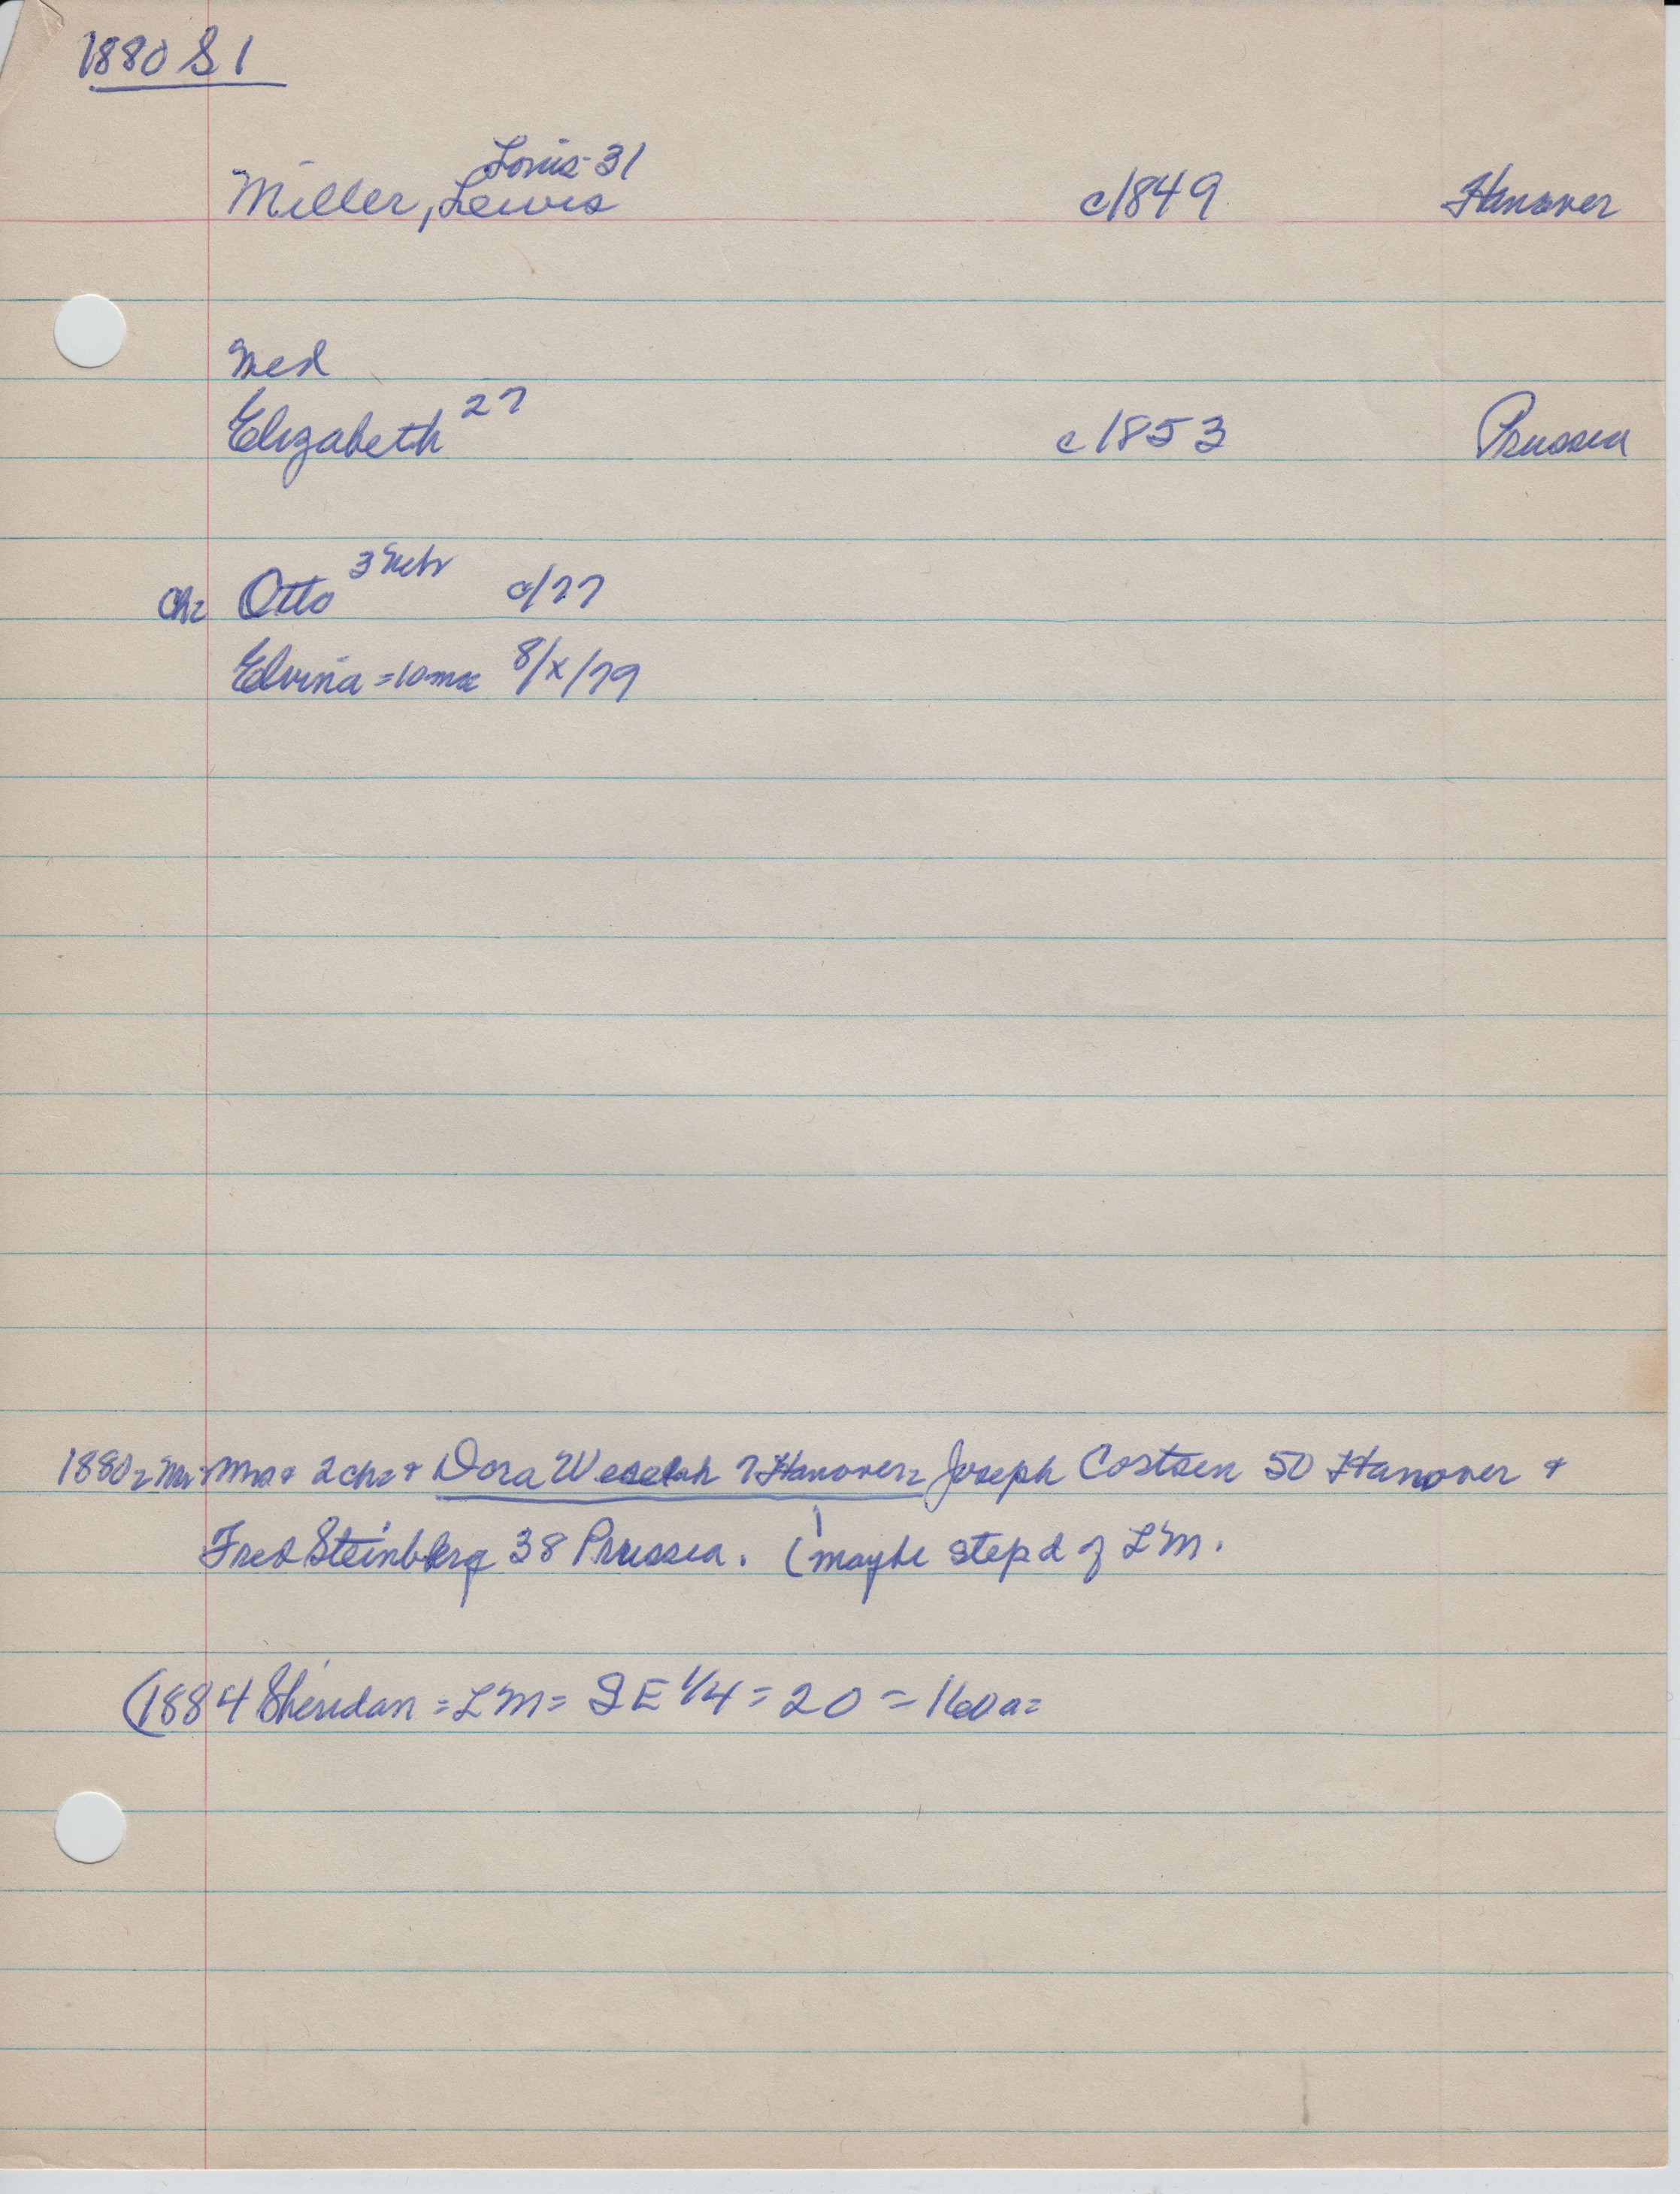 1880 S 1
Louis-31
Miller, Lewis c1849 Hanover
med
Elizabeth 27 c1853 Prussia
Ch= Otto 3 Nebr c/77
Elvina = 10 mos 8/x/79
1880= Mr-Mrs & 2 chs & Dora 7 Hanover= Joseph Costsen 50 Hanover &
Fred Steinberg 38 Prussia. (maybe step d of LM.
(1884 Sheridan = LM = SE 1/4 = 20 = 160 a=